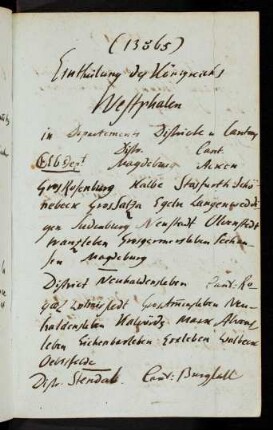 (13865)
Eintheilung des Königreichs
Westphalen
in Departements Districte u Cantons
Distr. Cant.
Elb Dept Magdeburg Acken
Gros Rosenburg Kalbe Stasfurth Schö-
nebeck Gros Salza Egeln Langenwed-
gen Sudenburg Neustadt Olvenstedt
Wansleben Grosgermersleben Seehau-
sen Magdeburg
District Neuhaldensleben Cant. Ro-
gaz Wolmirstedt Gros Ammensleben Neu-
haldensleben Marx Alvens
leben Eichenbarleben Erxleben Walbeck
Oebisfelde
Distr. Stendal. Cant. Burgstall